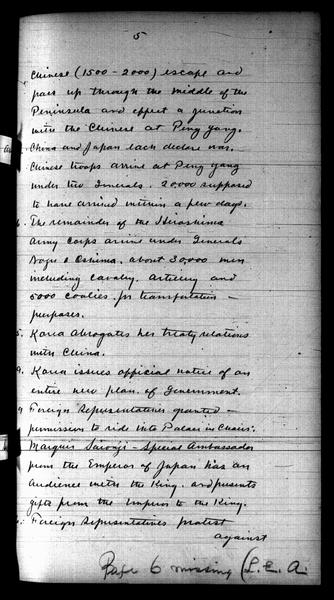 5
Chinese (1500 - 2000) escape and
pass up through the middle of the
Peninsula and effect a junction
with the Chinese at Ping Yang.
China and Japan each declare war.
Chinese troops arrive at Ping Yang
under two Generals. 20,000 supposed
to have arrived within a few days.
The remainder of the Hiroshima
Army Corps arrive under Generals
& Oshima. about 30,000 men
including cavalry, artillery and
5000 coolies for transportation -
purposes.
5. Korea abrogates her treaty relations
with China.
9. Korea issues official notice of an
entire new plan of Government.
Foreign Representatives granted -
permission to ride into Palace in chairs.
Marquis Saionji - Special Ambassador
from the Emperor of Japan has an
audience with the King. and presents
gifts from the Emperor to the King.
Foreign Representatives protest
against
Page 6 missing (L. E. A.